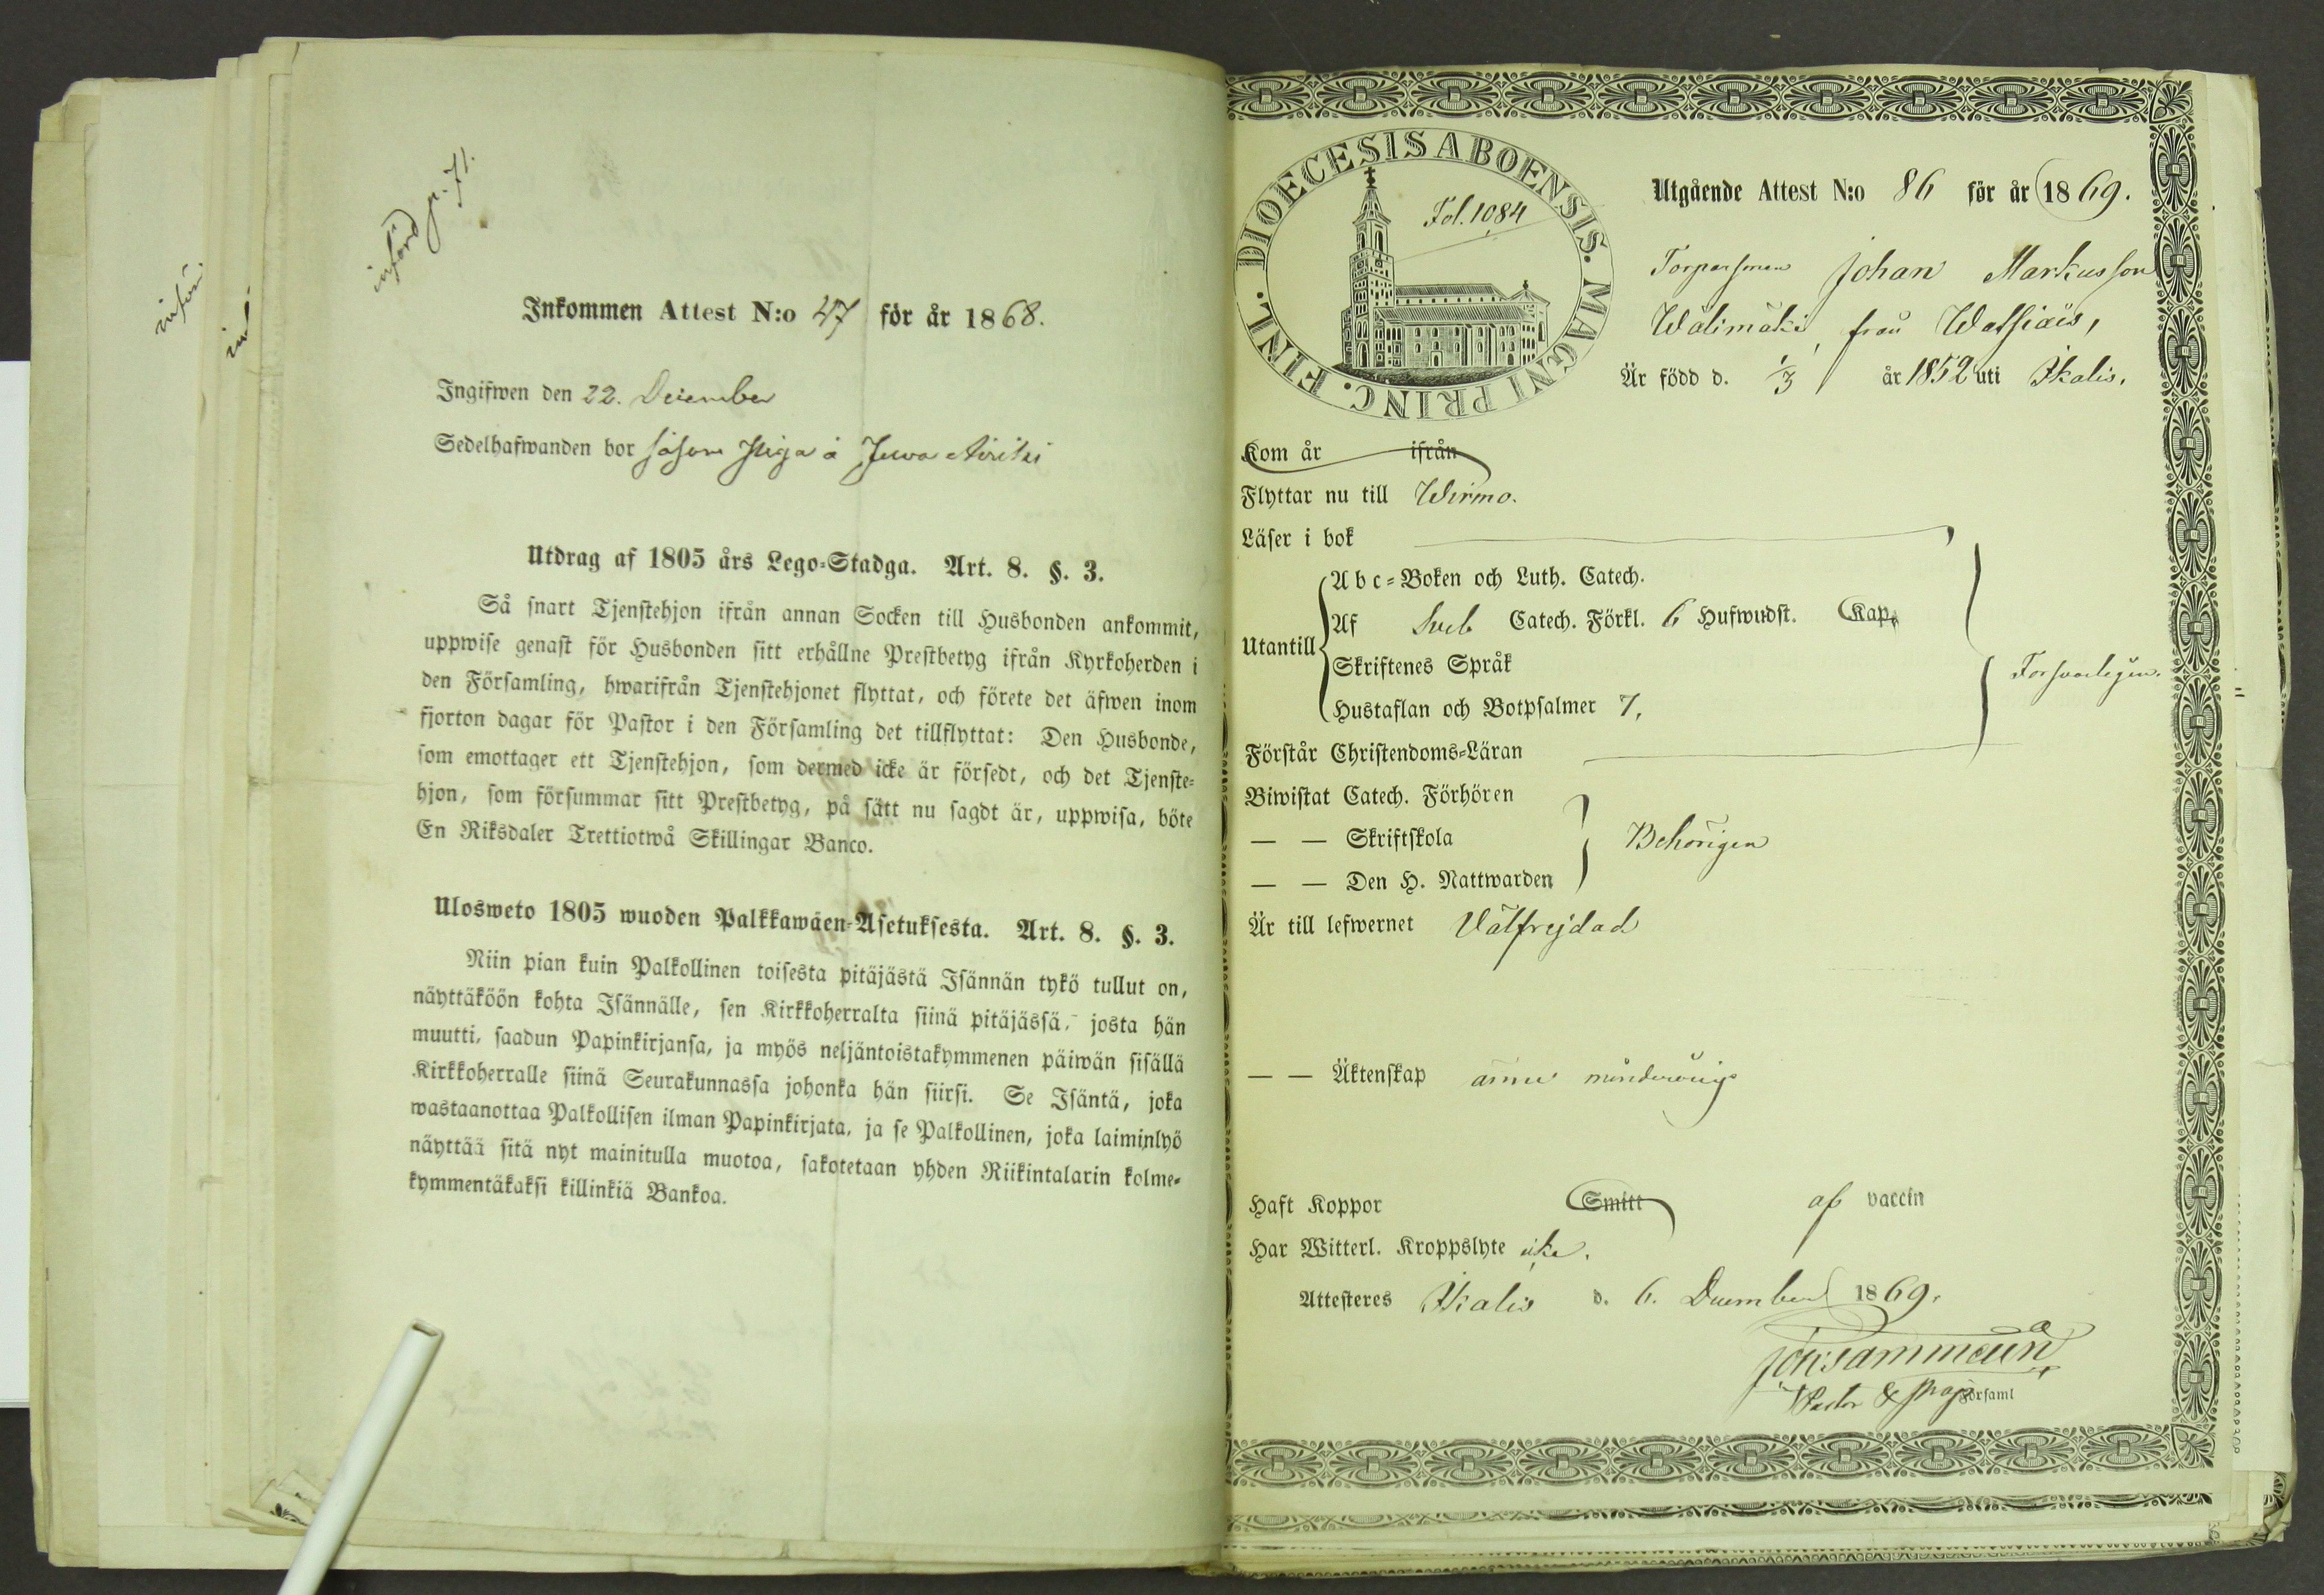 införd p. 71.
Inkommen Attest N:o 47 för år 1868.
Ingifwen den 22. December
Sedelhafwanden bor såsom Piga å Juva
Utdrag af 1805 års Lego-Stadga. Art. 8. §. 3.
Så snart Tjenstehjon ifrån annan Socken till Husbonden ankommit,
uppwise genast för Husbonden sitt erhållne Prestbetyg ifrån Kyrkoherden i
den Församling, hwarifrån Tjenstehjonet flyttat, och förete det äfwen inom
fjorton dagar för Pastor i den Församling det tillflyttat: Den Husbonde,
som emottager ett Tjenstehjon, som dermed icke är försedt, och det Tjenste-
hjon, som försummar sitt Prestbetyg, på sätt nu sagdt är, uppwisa, böte
En Riksdaler Trettiotwå Skillingar Banco.
Ulosweto 1805 wuoden Palkkawäen-Asetuksesta. Art. 8. §. 3.
Niin pian kuin Palkollinen toisesta pitäjästä Isännän tykö tullut on,
näyttäköön kohta Isännälle, sen Kirkkoherralta siinä pitäjässä, josta hän
muutti, saadun Papinkirjansa, ja myös neljäntoistakymmenen päiwän sisällä
Kirkkoherralle siinä Seurakunnassa johonka hän siirsi. Se Isäntä, joka
wastaanottaa Palkollisen ilman Papinkirjata, ja se Palkollinen, joka laiminlyö
näyttää sitä nyt mainitulla muotoa, sakotetaan yhden Riikintalarin kolme-
kymmentäkaksi killinkiä Bankoa.
DIOECESIS ABOENSIS. MAGNI PRINC. FINL.
Fol. 1084
Utgående Attest N:o 86 för år 1869.
Torparsonen Johan Markusson
Wälimäki, från Watsiais,
Är född d. 1/3 år 1852 uti Ikalis.
Kom år ifrån
Flyttar nu till Wirmo.
Läser i bok
Utantill
Abc-Boken och Luth. Catech.
Af Sveb Catech. Förkl. 6 Hufwudst. Kap.
Skriftenes Språk
Hustaflan och Botpsalmer 7,
Försvarligen.
Förstår Christendoms-Läran
Biwistat Catech. Förhören
— — Skriftskola
Behörigen
— — Den H. Nattwarden
Är till lefwernet Välfrejdad
— — Äktenskap ännu minderårig
Haft Koppor Smitt af vaccin
Har Witterl. Kroppslyte icke.
Attesteres Ikalis d. 6. December 1869.
Joh: Sammelin
Pastor & Prap
Församl